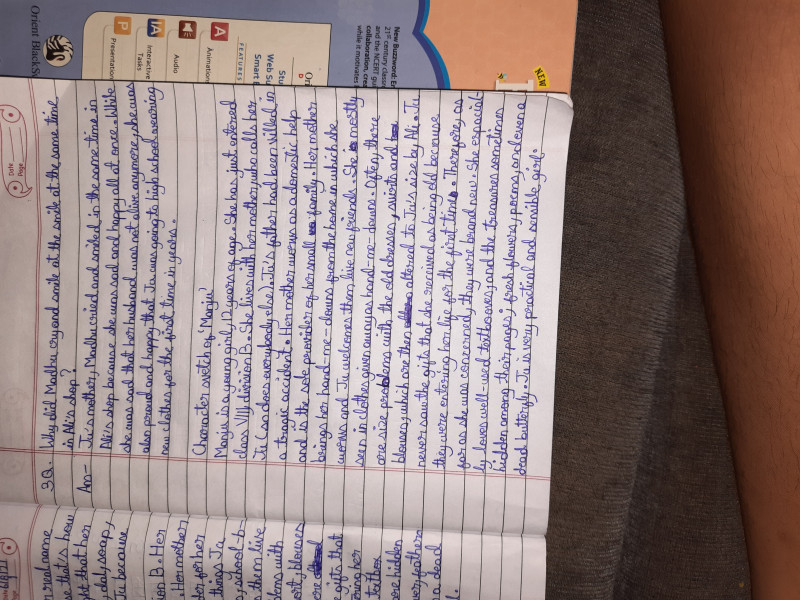 Orient BlackS
New Buzzword: E
21st century classr
and the NCERT gu
collaboration, crea
while it motivates
NEW
Ori
Stu
Web Su
Smart B
FEATURES
A Animation
Audio
IA Interactive
Tasks
P Presentation
Date
Page
3Q. Why did Madhu cry and smile at the smile at the same time
in Ali's shop?
Ans- Ju's mother, Madhu cried and smiled in the same time in
Ali's shop because she was sad and happy all at once. While
she was sad that her husband was not alive anymore, she was
also proud and happy that Ju was going to high school wearing
new clothes for the first time in years.
Character sketch of 'Manju'
Manju is a young girl, 12 years of age. She has just entered
class VIII division B. She lives with her mother, who calls her
Ju (as does everybody else). Ju's father had been killed in
a tragic accident. Her mother works as a domestic help
and is the sole provider of her small family. Her mother
brings her hand-me-downs from the home in which she
works and Ju welcomes them like new friends. She is mostly
seen in clothes given away as hand-me-downs. Often, there
are size problems with the old dresses, skirts and
blouses, which are then altered to Ju's size by Ali. Ju
never saw the gifts that she received as being old because
they were entering her life for the first time. Therefore, as
far as she was concerned, they were brand new. She especial-
ly loves well-used textbooks, and the treasures sometimes
hidden among their pages; fresh flowers, poems, and even a
dead butterfly. Ju is very practical and sensible girl.
real name
e that's how
ght that her
day soap,
Ju because
ion B. Her
Her mother
ter for her
things Ju
school-b-
them live
lems with
ort, blouses
gifts that
ering her
textbox
are hidden
very feathers
a dead